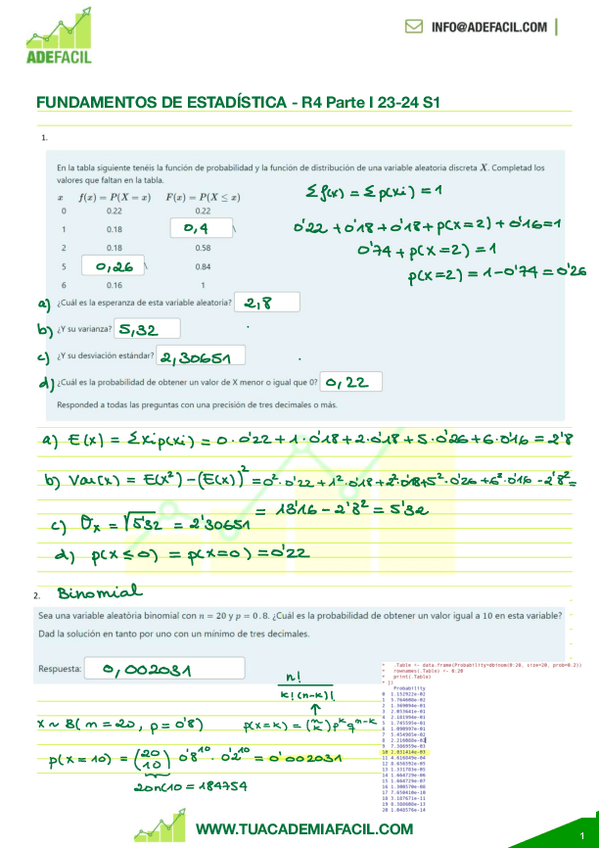 INFO@ADEFACIL.COM
ADEFACIL
FUNDAMENTOS DE ESTADÍSTICA - R4 Parte I 23-24 S1
1.
En la tabla siguiente tenéis la función de probabilidad y la función de distribución de una variable aleatoria discreta X. Completad los
valores que faltan en la tabla.
x f(x) = P(X = x) F(x) = P(X ≤ x)
0 0.22 0.22
1 0.18 0,4
2 0.18 0.58
5 0,26 0.84
6 0.16 1
Σf(x) = Σp(xi) = 1
0'22 + 0'18 + 0'18 + p(x=2) + 0'16 = 1
0'74 + p(x=2) = 1
p(x=2) = 1-0'74 = 0'26
a) ¿Cuál es la esperanza de esta variable aleatoria? 2,8
b) ¿Y su varianza? 5,32
c) ¿Y su desviación estándar? 2,30651
d) ¿Cuál es la probabilidad de obtener un valor de X menor o igual que 0? 0,22
Responded a todas las preguntas con una precisión de tres decimales o más.
a) E(x) = Σxip(xi) = 0·0'22 + 1·0'18 + 2·0'18 + 5·0'26 + 6·0'16 = 2'8
b) Var(x) = E(x²) - (E(x))² = 0²·0'22 + 1²·0'18 + 2²·0'18 + 5²·0'26 + 6²·0'16 - 2'8² =
= 13'16 - 2'8² = 5'32
c) σx = √5'32 = 2'30651
d) p(x ≤ 0) = p(x=0) = 0'22
2. Binomial
Sea una variable aleatòria binomial con n = 20 y p = 0.8. ¿Cuál es la probabilidad de obtener un valor igual a 10 en esta variable?
Dad la solución en tanto por uno con un mínimo de tres decimales.
Respuesta: 0,002031
n!
k!(n-k)!
x ~ B(n=20, p=0'8) p(x=k) = (n k) p^k q^n-k
p(x=10) = (20 10) 0'8^10 · 0'2^10 = 0'002031
20nCr10 = 184754
.Table <- data.frame(Probability=dbinom(0:20, size=20, prob=0.2))
rownames(.Table) <- 0:20
print(.Table)
Probability
0 1.152922e-02
1 5.764608e-02
2 1.369094e-01
3 2.053641e-01
4 2.181994e-01
5 1.745595e-01
6 1.090997e-01
7 5.454985e-02
8 2.216088e-02
9 7.386959e-03
10 2.031414e-03
11 4.616849e-04
12 8.656592e-05
13 1.331783e-05
14 1.664729e-06
15 1.664729e-07
16 1.300570e-08
17 7.650410e-10
18 3.187671e-11
19 8.388608e-13
20 1.048576e-14
WWW.TUACADEMIAFACIL.COM
1